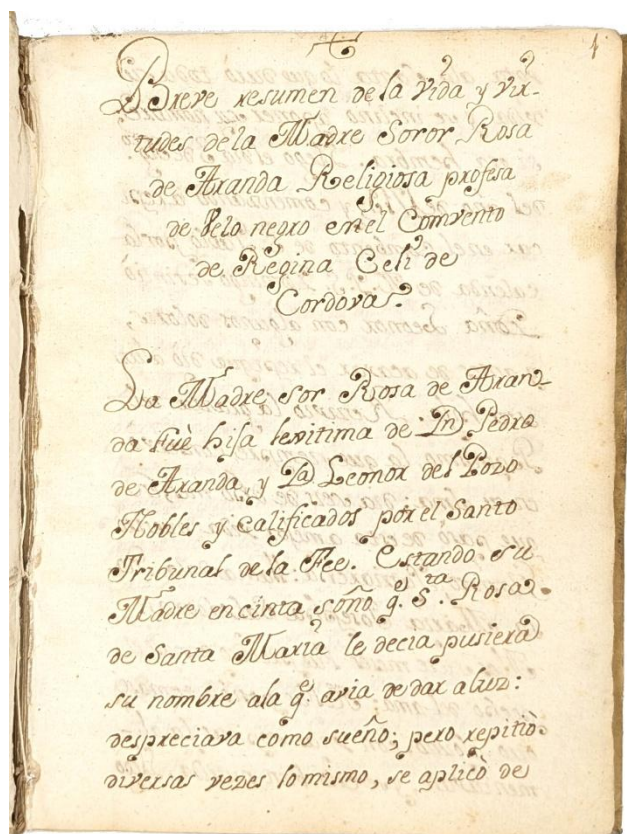 1
Breve resumen de la Vida y Vir-
tudes de la Madre Soror Rosa
de Aranda Religiosa profesa
de Velo negro en el Comvento
de Regina Celi de
Cordova.
La Madre sor Rosa de Aran-
da fuè hija lexitima de Dn. Pedro
de Aranda, y Da. Leonor del Pozo
Nobles y calificados por el Santo
Tribunal de la Fee. Estando su
Madre en cinta soño q.e S.ta Rosa
de Santa Maria le decia pusiera
su nombre ala q.e avia de dar a luz:
despreciava como sueño; pero repitiò
diversas vezes lo mismo, se aplicò de